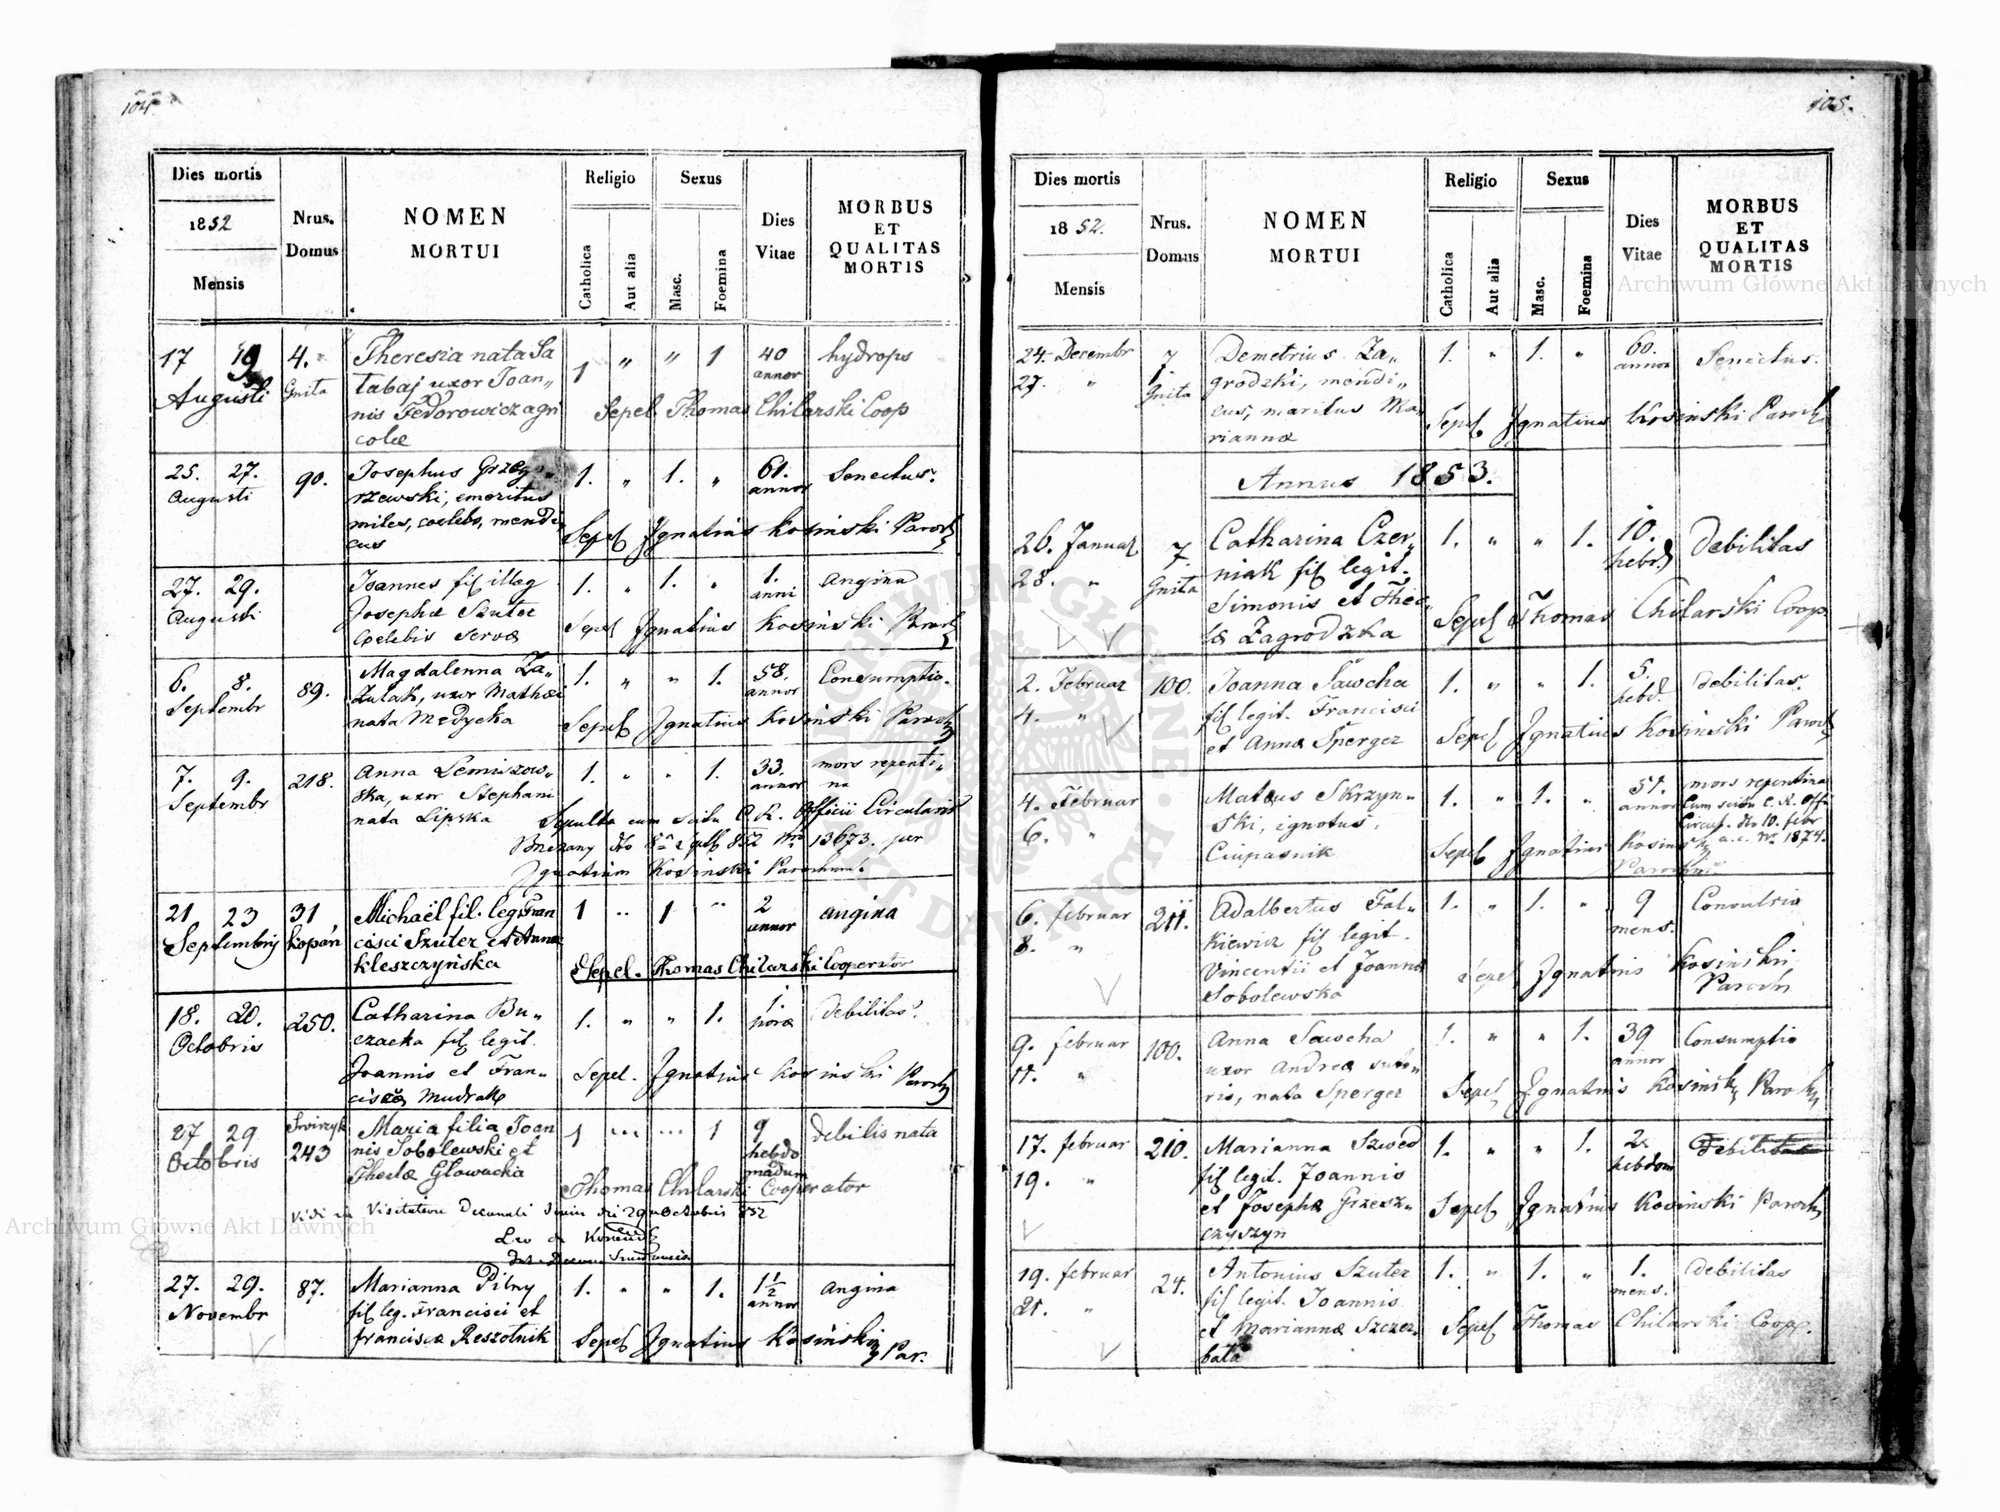 104.
Dies mortis
1852
Mensis
Nrus.
Domus
NOMEN
MORTUI
Religio
Catholica
Aut alia
Sexus
Masc.
Foemina
Dies
Vitae
MORBUS
ET
QUALITAS
MORTIS
17 19 4. Theresia nata Sa 1 " " 1 40 hydrops
Augusti Gnita tabaj uxor Joan„ annor
nis Fedorowicz agri Sepel Thomas Chilarski Coop
colæ
25. 27. 90. Josephus Grzego„ 1. " 1. " 61. Senectus.
Augusti rzewski, emeritus annor
miles, coelebs, mendi
cus Sepel Ignatius Kosinski Paroch
27. 29. Joannes fil illeg 1. " 1. " 1. angina
Augusti Josephæ Szuter anni
Coelebis servæ Sepel Ignatius Kosinski Paroch
6. 8. 89. Magdalenna Za„ 1. " " 1. 58. Consumptio.
Septembr Zulak, uxor Mathæi annor
nata Medycka Sepel Ignatius Kosinski Paroch
7. 9. 218. Anna Lemiszow„ 1. " " 1. 33. mors repenti„
Septembr ska, uxor Stephani annor na
nata Lipska Sepulta cum scitu C. R. Officii Circularis
13673. per
Ignatium Kosinski Parochum.
21 23 31 Michaël fil. leg Fran 1 " 1 " 2 angina
Septembris Kopań cisci Szuter et Anna annor
Kleszczyńska Sepel. Thomas Chilarski Cooperator
18. 20. 250. Catharina Bu„ 1. " " 1. 1. Debilitas.
Octobris czacka fil legit. horæ
Joannis et Fran„ Sepel. Ignatius Kosinski Paroch
ciscæ Mudrak
27 29 Swirzyk Maria filia Joan 1 " " 1 9 debilis nata
Octobris 243 nis Sobolewski et hebdo
Theclæ Głowacka madum
Thomas Chilarski Cooperator
Vidi in Visitatione Decanali 29 Octobris 852
27. 29. 87. Marianna Pilny 1. " " 1. 1½ angina
Novembr fil leg. Francisci et annor
Franciscæ Reszotnik Sepel Ignatius Kosinski
Par.
105.
Dies mortis
1852.
Mensis
Nrus.
Domus
NOMEN
MORTUI
Religio
Catholica
Aut alia
Sexus
Masc.
Foemina
Dies
Vitae
MORBUS
ET
QUALITAS
MORTIS
24. Decembr 7. Demetrius Za„ 1. " 1. " 60. Senectus.
27. " Gnita grodzki, mendi„ annor
cus, maritus Ma„
riannæ Sepel Ignatius Kosinski Paroch
Annus 1853.
26. Januar 7. Catharina Czer„ 1. " " 1. 10. Debilitas
28. " Gnita niak fil legit. hebd
Simonis et Thec„
læ Zagrodzka Sepel Thomas Chilarski Coop
2. Februar 100. Joanna Sawcha 1. " " 1. 5. debilitas.
4. " fil legit. Francisci hebd.
et Annæ Sperger Sepel Ignatius Kosinski Paroch
4. Februar Mateus Skrzyn„ 1. " 1. " 51. mors repentina
6. " ski, ignotus, annor Cum scitu C. R. Offi
Ciupasnik Circul. dto 10. febr
Sepel Ignatius Kosinski a.c. Nr. 1874.
Paroch
6. februar 211. Adalbertus Fal„ 1. " 1. " 9 Convulsio
8. " kiewicz fil legit. mens.
Vincentii et Joanna
Sobolewska Sepel Ignatius Kosinski
Paroch
9. februar 100. Anna Sawcha 1. " " 1. 39 Consumptio
11. " uxor Andreæ suto„ annor
ris, nata Sperger Sepel Ignatius Kosinski Paroch
17. februar 210. Marianna Szwed 1. " " 1. 2. Debilitas
19. " fil legit. Joannis hebdom
et Josephæ Grzesz„
czyszyn Sepel Ignatius Kosinski Paroch
19. februar 24. Antonius Szuter 1. " 1. " 1. debilitas
21. " fil legit. Joannis mens.
et Mariannæ Szczer„
bata Sepel Thomas Chilarski Coop.
Archiwum Główne Akt Dawnych
Archiwum Główne Akt Dawnych
ARCHIWUM GŁÓWNE AKT DAWNYCH